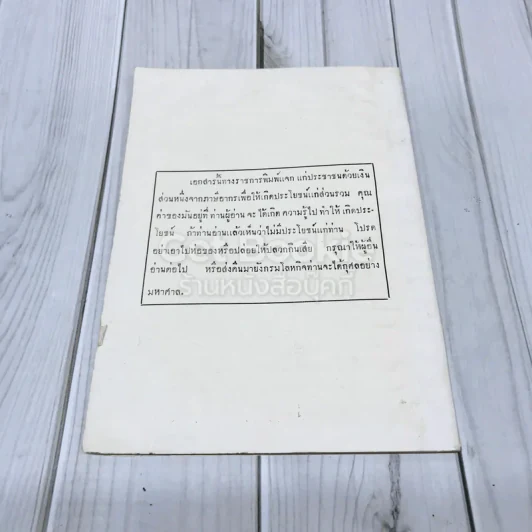 เอกสารนี้ทางราชการพิมพ์แจก แก่ประชาชนด้วยเงิน
ส่วนหนึ่งจากภาษีอากรเพื่อให้เกิดประโยชน์แก่ส่วนรวม คุณ
ค่าของมันอยู่ที่ ท่านผู้อ่าน จะ ได้เกิด ความรู้ไป ทำให้ เกิดประ-
โยชน์ ถ้าท่านอ่านแล้วเห็นว่าไม่มีประโยชน์แก่ท่าน โปรด
อย่าเอาไปห่อของหรือปล่อยให้ปลวกกินเสีย กรุณาให้ผู้อื่น
อ่านต่อไป หรือส่งคืนมายังกรมโลหกิจท่านจะได้กุศลอย่าง
มหาศาล.
ร้านหนังสือบุคที